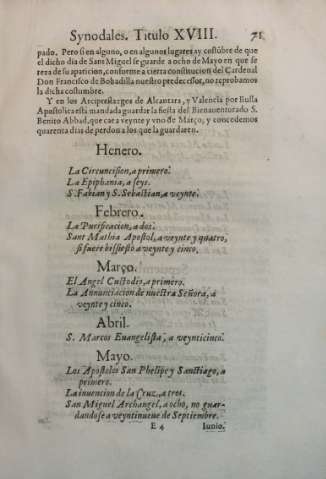 Synodales. Titulo XVIII. 71
pado. Pero si en alguno, o en algunos lugares ay costũbre de que
el dicho dia de Sant Miguel se guarde a ocho de Mayo en que se
reza de su aparicion, conforme a cierta constitucion del Cardenal
Don Francisco de Bobadilla nuestro predecessor, no reprobamos
la dicha costumbre.
Y en los Arciprestazgos de Alcantara, y Valencia por Bulla
Apostolica esta mandada guardar la fiesta del Bienaventurado S.
Benito Abbad, que cae a veynte y vno de Março, y concedemos
quarenta dias de perdon a los que la guardaren.
Henero.
La Circuncision, a primero.
La Epiphania, a seys.
S. Fabian y S. Sebastian, a veynte.
Febrero.
La Purificacion, a dos.
Sant Mathia Apostol, a veynte y quatro,
si fuere bissiesto a veynte y cinco.
Março.
El Angel Custodio, a primero.
La Annunciacion de nuestra Señora, a
veynte y cinco.
Abril.
S. Marcos Euangelista, a veynticinco.
Mayo.
Los Apostoles San Phelipe y Sanctiago, a
primero.
La inuencion de la Cruz, a tres.
San Miguel Archangel, a ocho, no guar-
dandose a veyntinueue de Septiembre.
E 4 Iunio.